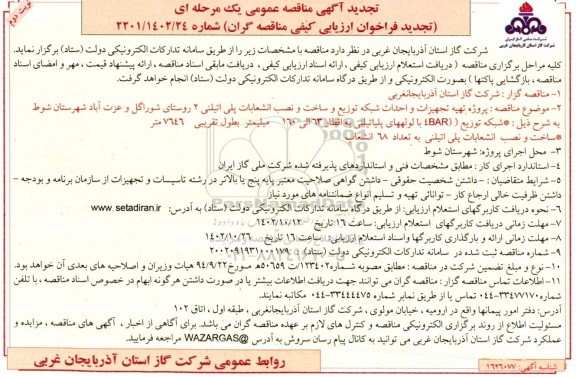 نوبت دوم
تجدید آگهی مناقصه عمومی یک مرحله ای
(تجدید فراخوان ارزیابی کیفی مناقصه گران) شماره ۲۲۰۱/۱۴۰۲/۲۴
شرکت ملی گاز ایران
شرکت گاز استان آذربایجان غربی
شرکت گاز استان آذربایجان غربی در نظر دارد مناقصه با مشخصات زیر را از طریق سامانه تدارکات الکترونیکی دولت (ستاد) برگزار نماید.
کلیه مراحل برگزاری مناقصه ( دریافت استعلام ارزیابی کیفی ، ارائه اسناد ارزیابی کیفی ، دریافت مابقی اسناد مناقصه ، ارائه پیشنهاد قیمت ، مهر و امضای اسناد
مناقصه ، بازگشایی پاکتها ) بصورت الکترونیکی و از طریق درگاه سامانه تدارکات الکترونیکی دولت (ستاد) انجام خواهد گرفت.
۱- مناقصه گزار : شرکت گاز استان آذربایجانغربی
۲- موضوع مناقصه : پروژه تهیه تجهیزات و احداث شبکه توزیع و ساخت و نصب انشعابات پلی اتیلنی ۲ روستای شوراگل و عزت آباد شهرستان شوط
به شرح ذیل : *شبکه توزیع ( 4BAR) با لولههای پلیاتیلنی به اقطار 63 الی 160 میلیمتر بطول تقریبی ۷۶۴۶ متر
*ساخت و نصب انشعابات پلی اتیلنی به تعداد ۶۸ انشعاب
۳- محل اجرای پروژه: شهرستان شوط
۴- استاندارد اجرای کار : مطابق مشخصات فنی و استانداردهای پذیرفته شده شرکت ملی گاز ایران
۵- شرایط متقاضیان : - داشتن شخصیت حقوقی - داشتن گواهی صلاحیت معتبر پایه پنج یا بالاتر در رشته تاسیسات و تجهیزات از سازمان برنامه و بودجه -
داشتن ظرفیت خالی ارجاع کار - توانائی تهیه و تسلیم انواع ضمانتنامه های مورد نیاز
۶- نحوه دریافت کاربرگهای استعلام ارزیابی: از طریق درگاه سامانه تدارکات الکترونیکی دولت (ستاد) به آدرس: www.setadiran.ir
۷- مهلت زمانی دریافت کاربرگهای استعلام ارزیابی: ساعت ۱۶ تاریخ ۱۴۰۲/۱۰/۱۲
۸- مهلت زمانی ارائه و بارگذاری کاربرگها واسناد استعلام ارزیابی: ساعت ۱۶ تاریخ ۱۴۰۲/۱۰/۲۶
۹- شماره مناقصه ثبت شده در سامانه تدارکات الکترونیکی دولت (ستاد):
۱۰- نوع و مبلغ تضمین شرکت در مناقصه : مطابق مصوبه شماره ۱۲۳۴۰۲/ت ۵۰۶۵۹ هـ مورخ ۹۴/۹/۲۲ هیات وزیران و اصلاحیه های بعدی آن خواهد بود.
۱۱- اطلاعات تماس مناقصه گزار : مناقصه گران می توانند جهت دریافت اطلاعات بیشتر یا در صورت داشتن هرگونه ابهام در خصوص اسناد مناقصه ، با تلفن
شماره ۳۳۴۷۷۱۷۰-۰۴۴ تماس یا از طریق نمابر شماره ۳۳۴۴۴۴۷۵-۰۴۴ مکاتبه نمایند.
آدرس: دفتر امور پیمانها واقع در ارومیه ، خیابان مولوی ، شرکت گاز استان آذربایجانغربی ، طبقه اول ، اتاق ۱۰۲
مسئولیت اطلاع از روند برگزاری الکترونیکی مناقصه و کنترل های لازم بر عهده مناقصه گران می باشد. برای آگاهی از اخبار ، آگهی های مناقصه ، مزایده و
عملکرد شرکت گاز استان آذربایجان غربی می توانید به کانال پیام رسان سروش به آدرس @WAZARGAS مراجعه فرمایید.
شناسه آگهی: ۱۶۲۶۰۷۷
روابط عمومی شرکت گاز استان آذربایجان غربی